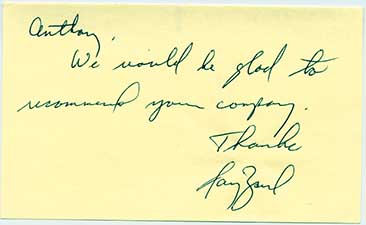 Anthony,
We would be glad to
recommend your company.
Thanks